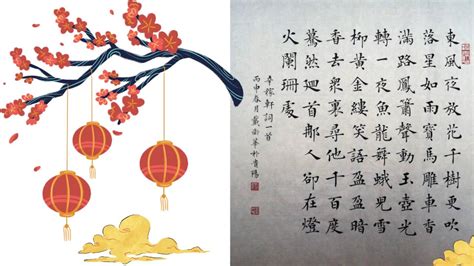 東風夜放花千樹更吹
落星如雨寶馬雕車香
滿路鳳簫聲動玉壺光
轉一夜魚龍舞蛾兒雪
柳黃金縷笑語盈盈暗
香去衆裏尋他千百度
驀然迴首那人卻在燈
火闌珊處
辛稼軒詞一首
丙申春月戴華於貴陽